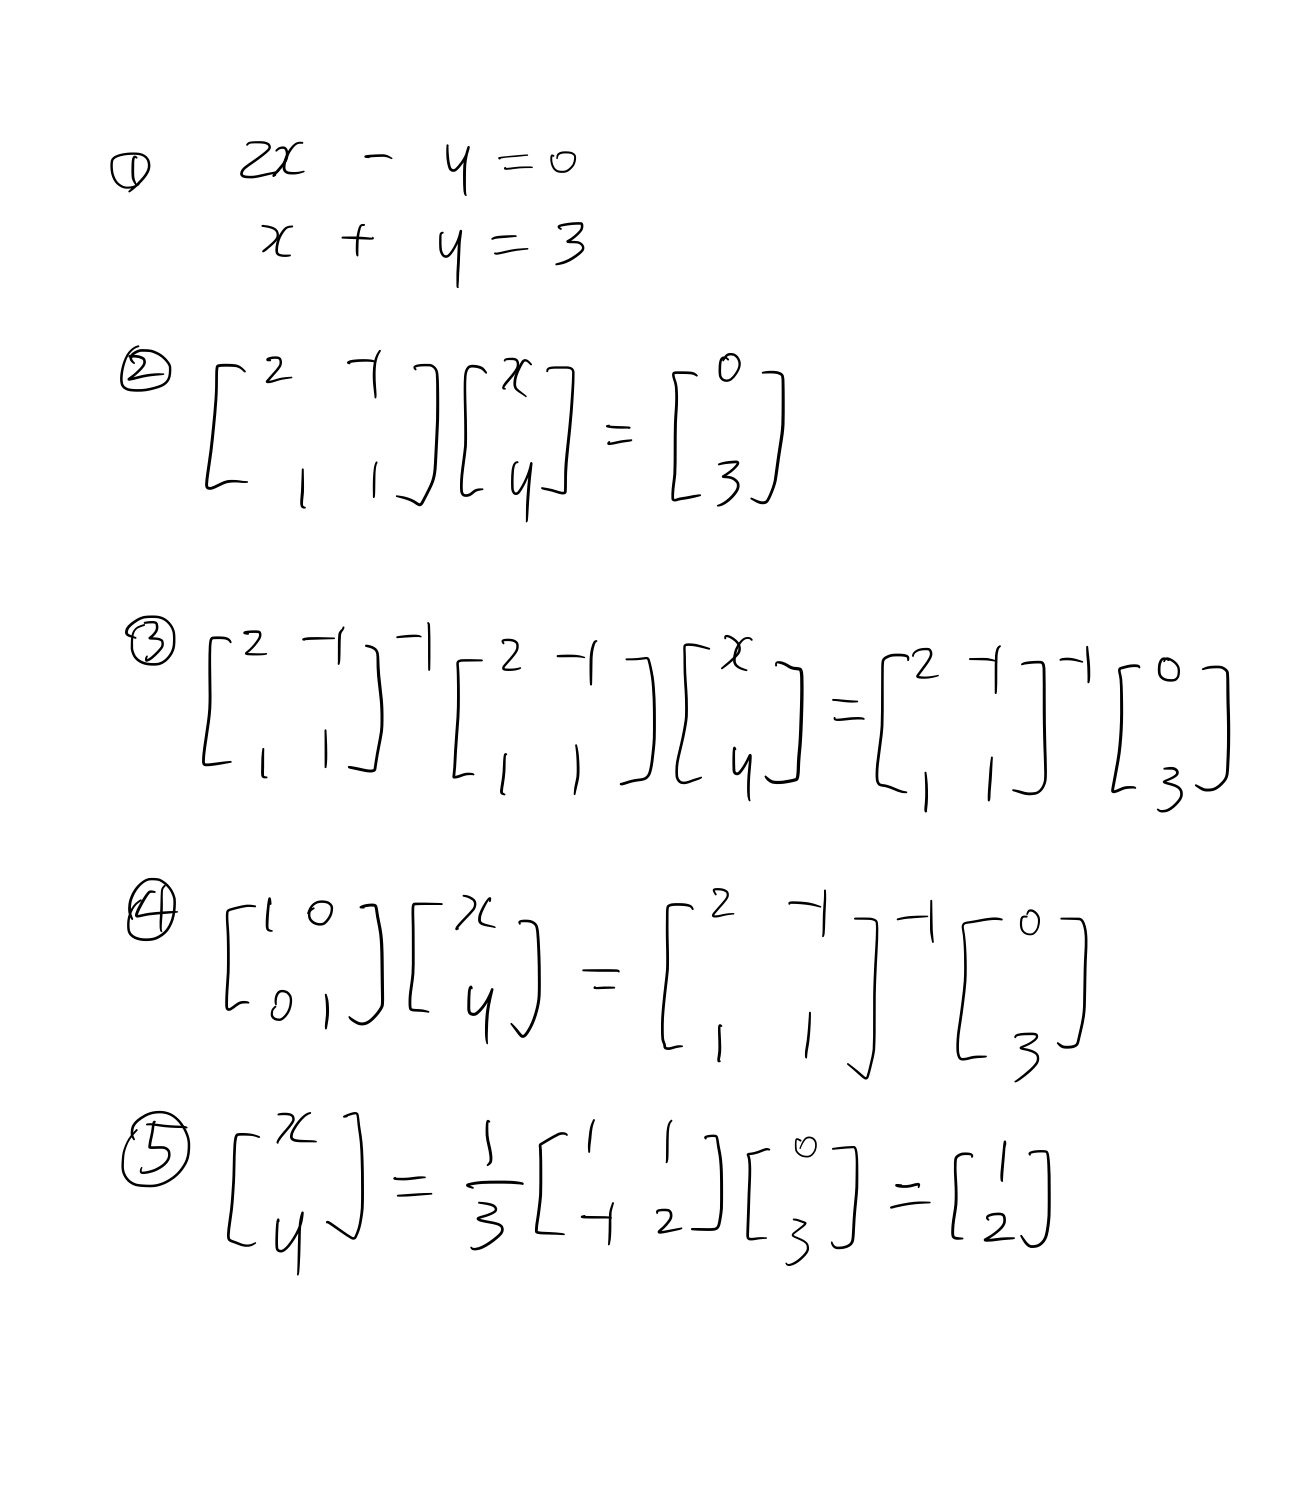 ① 2x - y = 0
x + y = 3
② [2 -1; 1 1] [x; y] = [0; 3]
③ [2 -1; 1 1]⁻¹ [2 -1; 1 1] [x; y] = [2 -1; 1 1]⁻¹ [0; 3]
④ [1 0; 0 1] [x; y] = [2 -1; 1 1]⁻¹ [0; 3]
⑤ [x; y] = 1/3 [1 1; -1 2] [0; 3] = [1; 2]